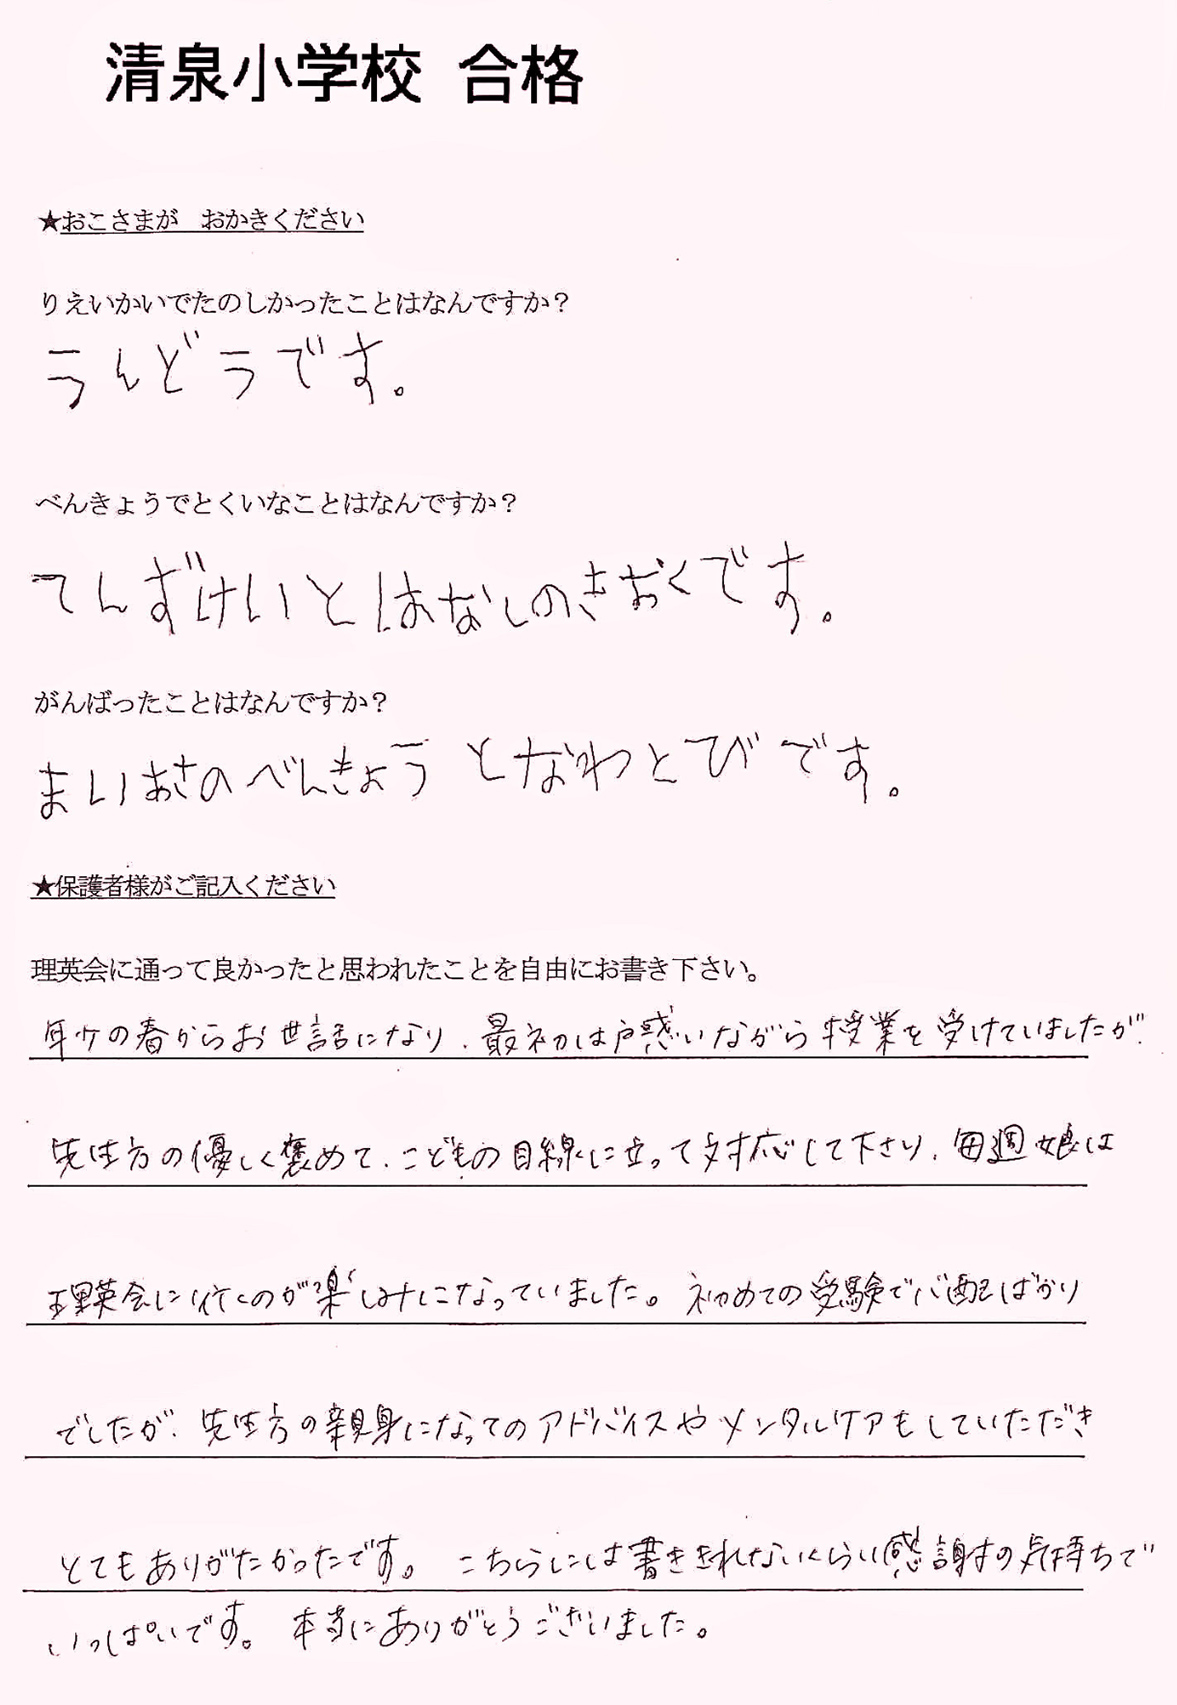 清泉小学校 合格
★おこさまが　おかきください
りえいかいでたのしかったことはなんですか？
うんどうです。
べんきょうでとくいなことはなんですか？
てんずけいとはなしのきおくです。
がんばったことはなんですか？
まいあさのべんきょうとなわとびです。
★保護者様がご記入ください
理英会に通って良かったと思われたことを自由にお書き下さい。
年少の春からお世話になり、最初は戸惑いながら授業を受けていましたが、
先生方の優しく褒めて、こどもの目線に立って対応して下さり、毎週娘は
理英会に行くのが楽しみになっていました。初めての受験で心配ばかり
でしたが、先生方の親身になってのアドバイスやメンタルケアもしていただき
とてもありがたかったです。こちらには書ききれないくらい感謝の気持ちで
いっぱいです。本当にありがとうございました。